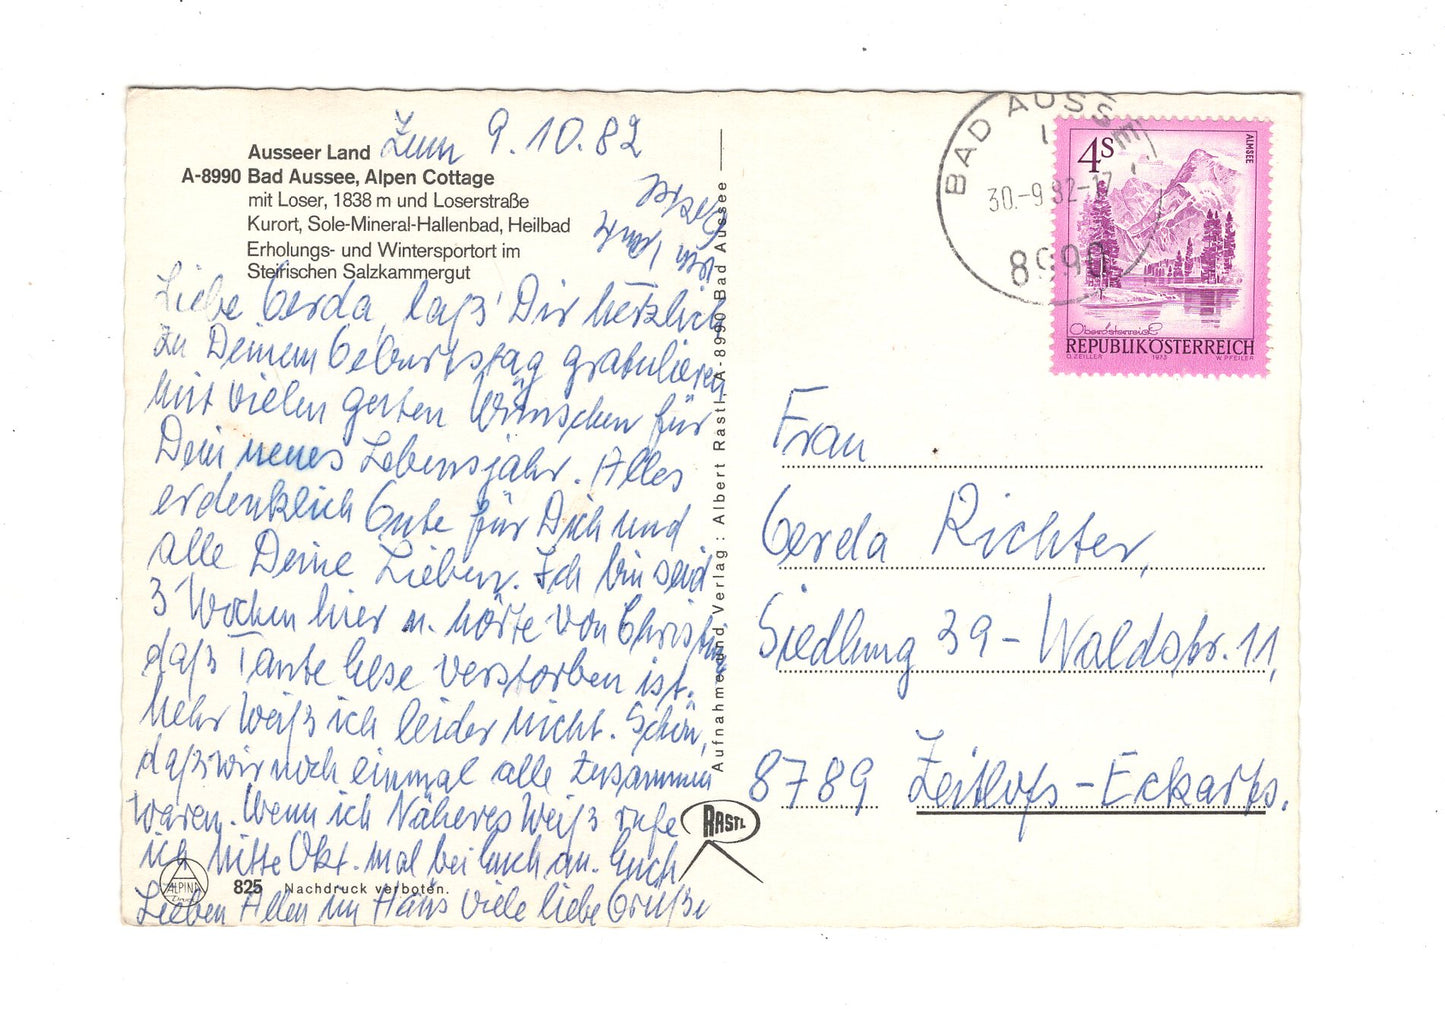 Zum 9.10.82
Ausseer Land
A-8990 Bad Aussee, Alpen Cottage
mit Loser, 1838 m und Loserstraße
Kurort, Sole-Mineral-Hallenbad, Heilbad
Erholungs- und Wintersportort im
Steirischen Salzkammergut
Liebe Gerda, laß' Dir herzlich
zu Deinem Geburtstag gratulieren
mit vielen guten Wünschen für
Dein neues Lebensjahr. Alles
erdenklich Gute für Dich und
alle Deine Lieben. Ich bin seid
3 Wochen hier u. hörte von Christin
daß Tante Else verstorben ist.
Mehr weiß ich leider nicht. Schön,
daß wir noch einmal alle zusammen
waren. Wenn ich Näheres weiß rufe
ich Mitte Okt. mal bei Euch an. Euch
Lieben Allen im Haus viele liebe Grüße
825 Nachdruck verboten.
ALPINA
Druck
Aufnahme und Verlag: Albert Rastl, A-8990 Bad Aussee
RASTL
BAD AUSSEE
1
30.-9.82-17
8990
4S
ALMSEE
Oberösterreich
REPUBLIK ÖSTERREICH
O. ZEILLER 1973 W. PFEILER
Frau
Gerda Richter,
Siedlung 39 - Waldstr. 11,
8789 Zeitlofs-Eckarts.